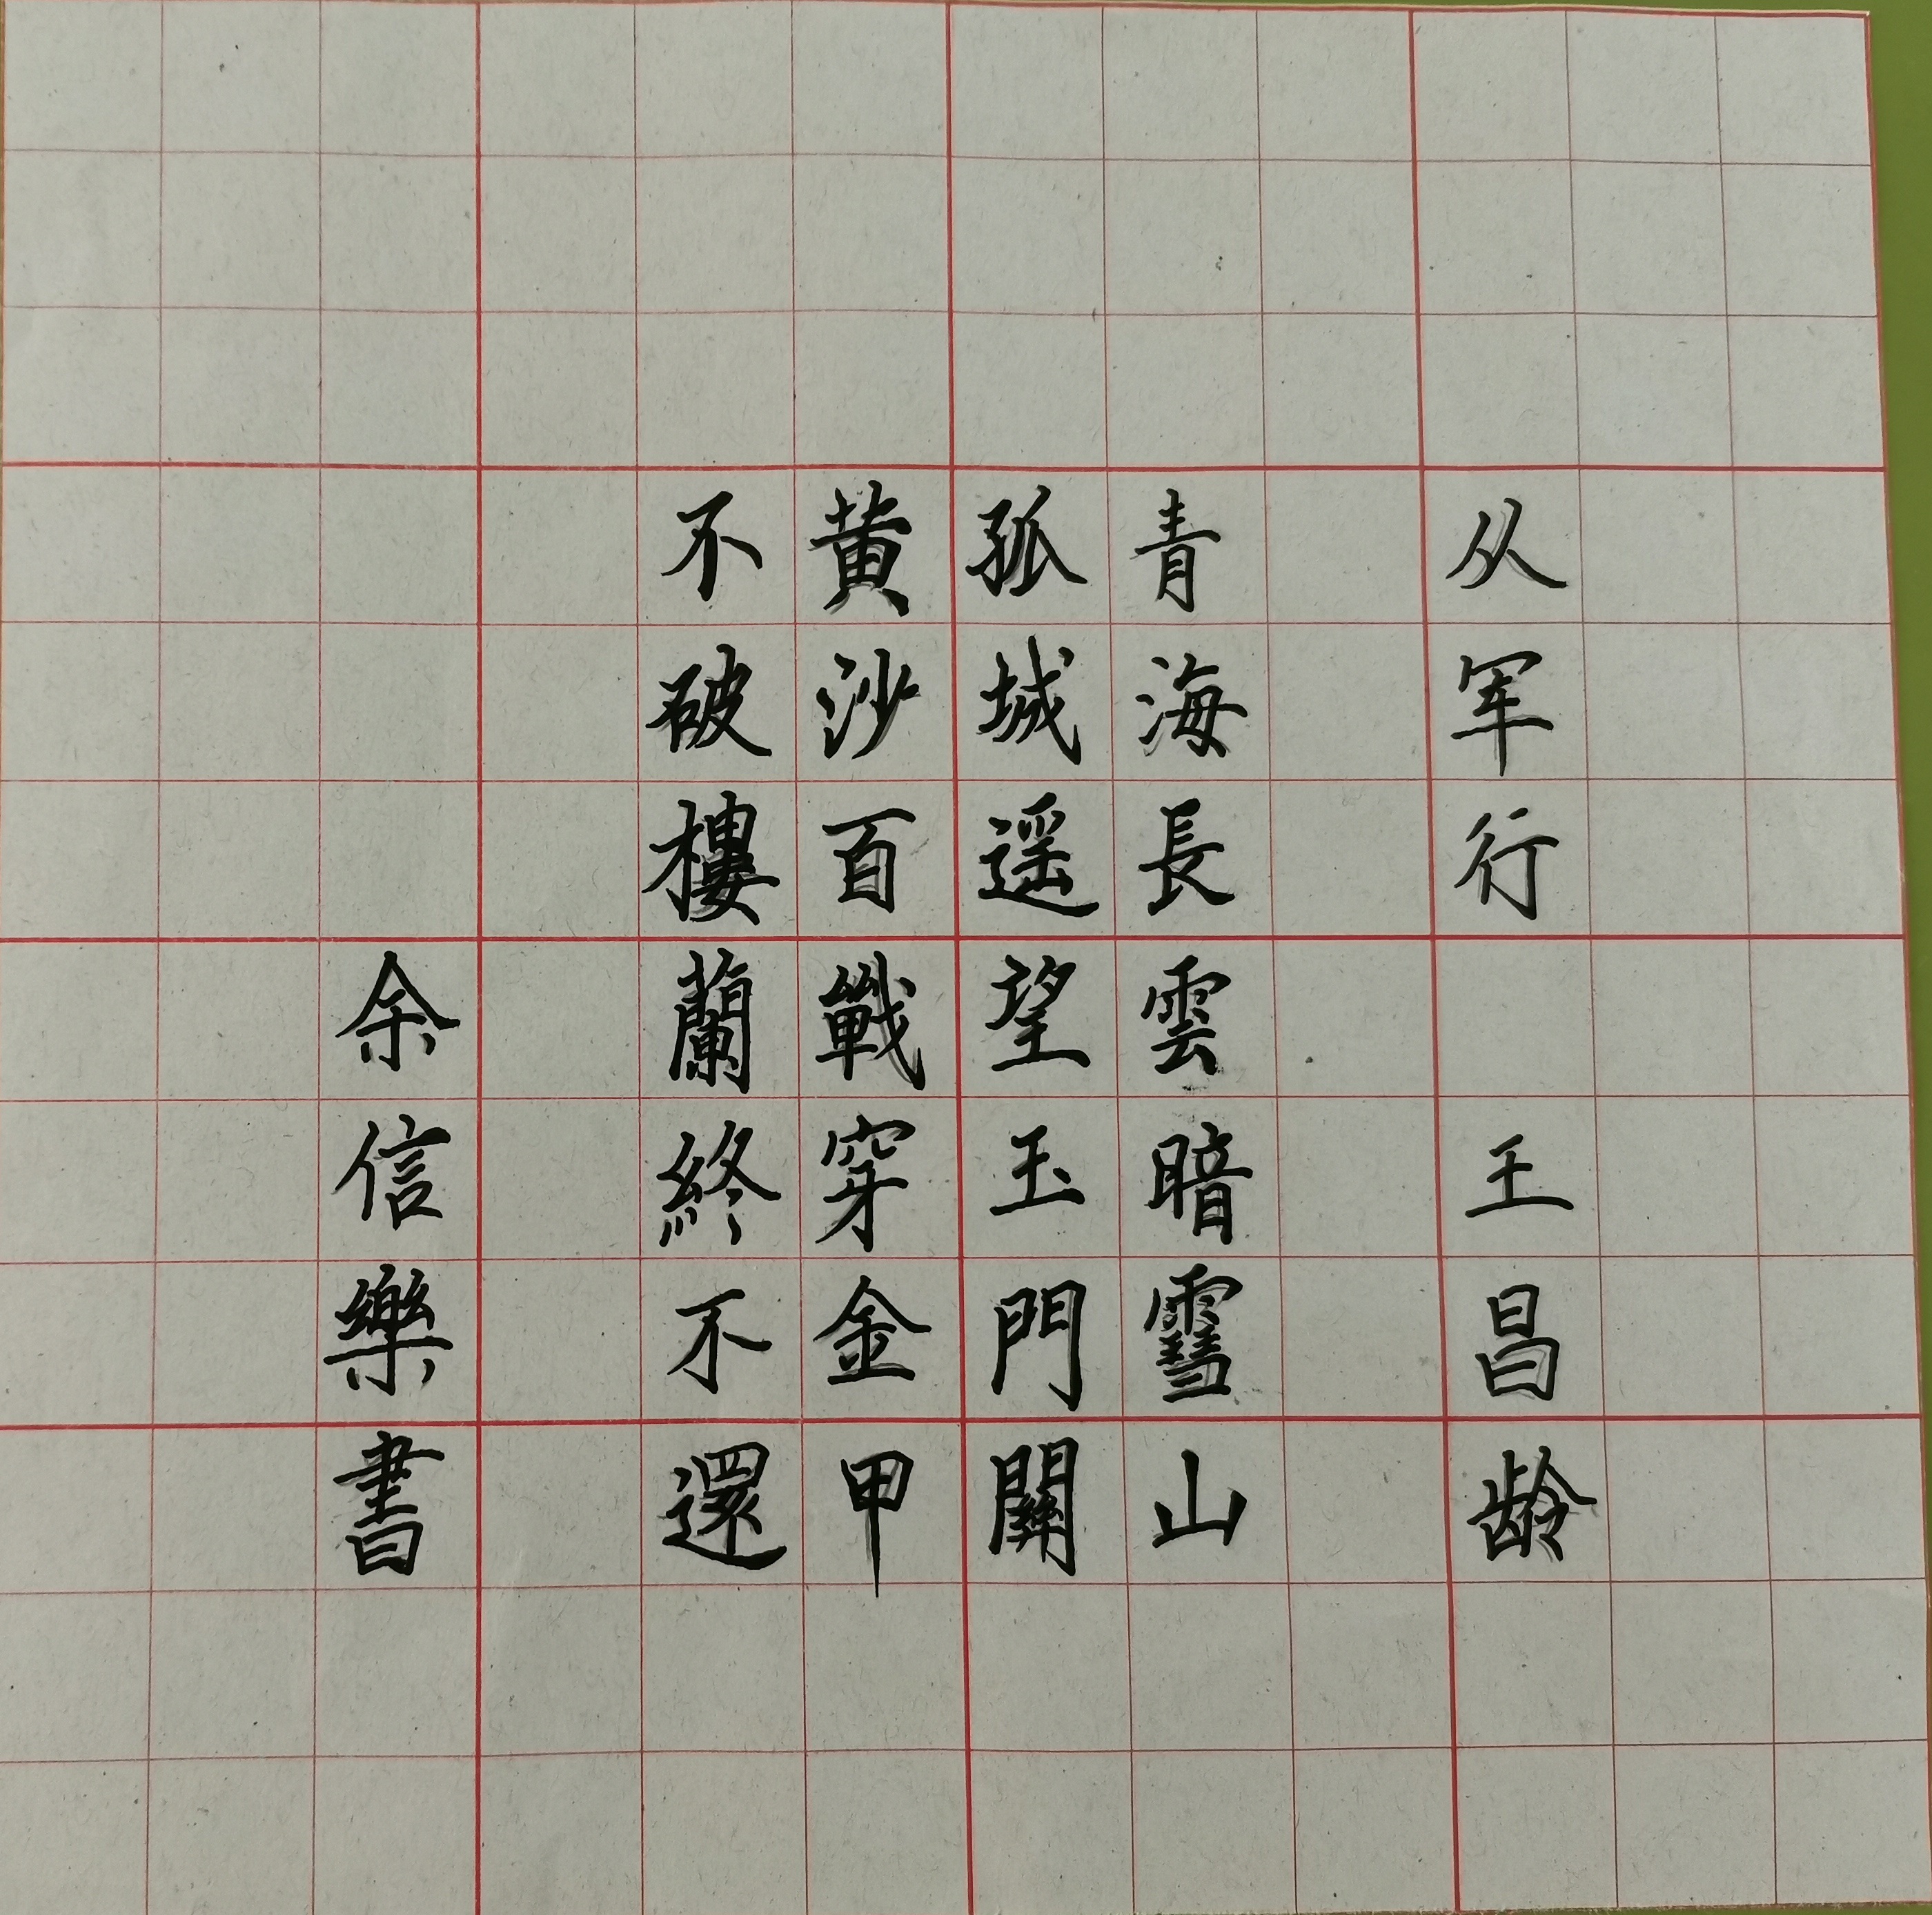 从军行 王昌龄
青海長雲暗雪山
孤城遥望玉門關
黄沙百戰穿金甲
不破樓蘭終不還
余信樂書